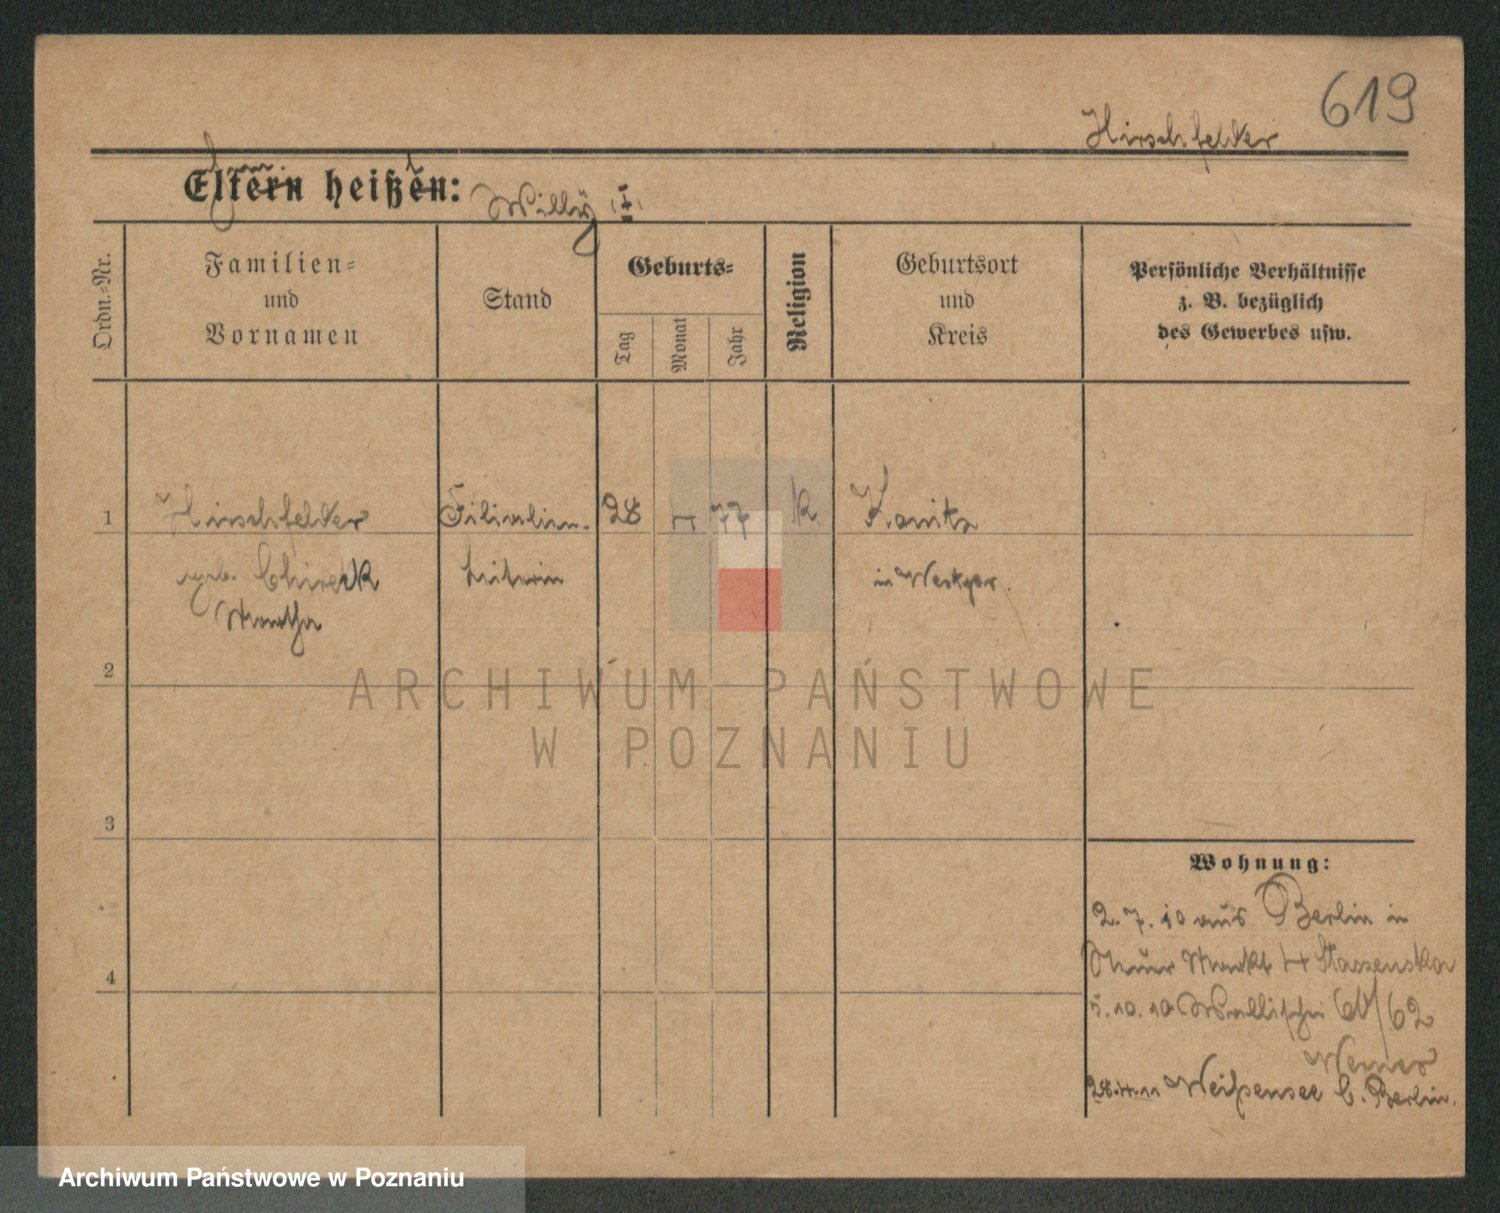 619
Hirschfelder
Eltern heißen: Willy
Ordn.-Nr.
Familien-
und
Vornamen
Stand
Geburts-
Tag
Monat
Jahr
Religion
Geburtsort
und
Kreis
Persönliche Verhältnisse
z. B. bezüglich
des Gewerbes usw.
1
Hirschfelder
Filialen-
28
4
77
k.
Konitz
geb. Chireck
leiterin
in Westpr.
Martha
2
3
4
Wohnung:
2. 7. 10 aus Berlin in
Markt 4
5. 10. 10 Wallischei 61/62
Werner
28. 4. 11 Weißensee b. Berlin.
ARCHIWUM PAŃSTWOWE
W POZNANIU
Archiwum Państwowe w Poznaniu